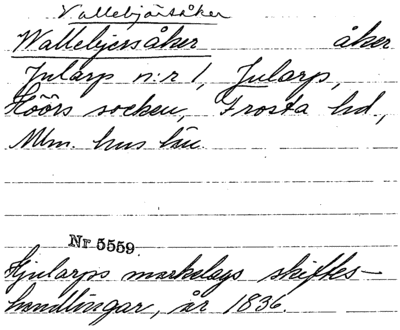 Vallebjörsåker
Wallebjersåker åker
Jularp n:r 1, Jularp,
Höörs socken, Frosta hd.,
Mlm. hus län
Nr 5559
Hjularps markelags skiftes-
handlingar, år 1836.